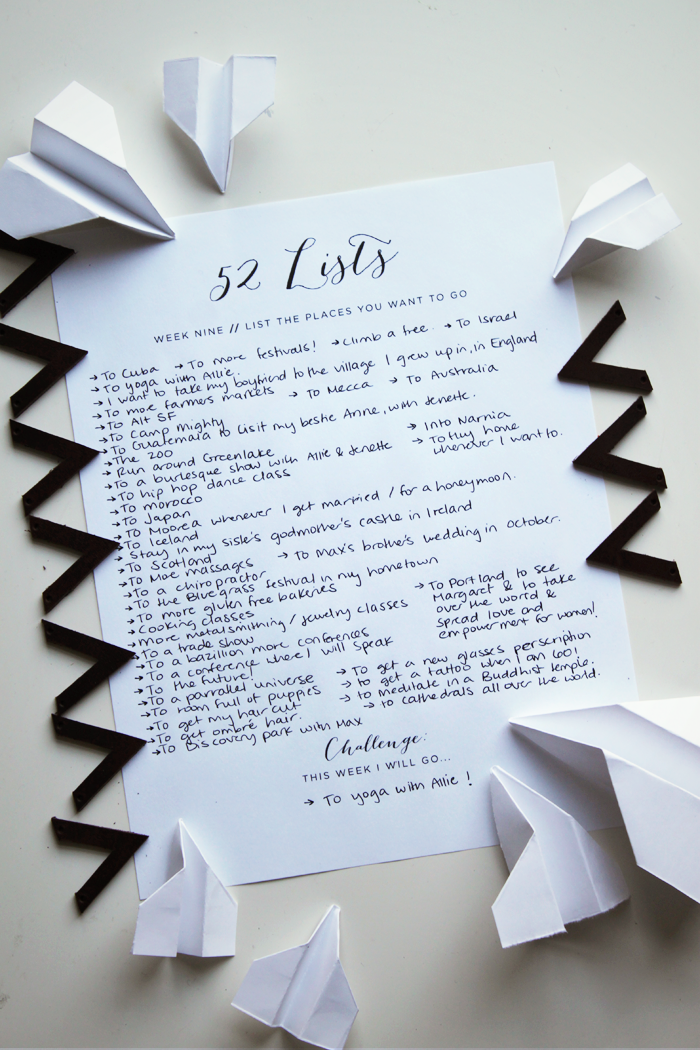 52 Lists
WEEK NINE // LIST THE PLACES YOU WANT TO GO
→To Cuba →To more festivals! →Climb a tree. →To Israel
→To yoga with Allie.
→I want to take my boyfriend to the village I grew up in, in England
→To more farmers markets →To Mecca →To Australia
→To Alt SF
→To Camp mighty
→To Guatemala to visit my bestie Anne, with Jenette.
→The zoo →Into Narnia
→Run around Greenlake →To Fluy home
→To a burlesque show with Allie & Jenette whenever I want to.
→To hip hop dance class
→To morocco
→To Japan
→To Moorea whenever I get married / for a honeymoon.
→To Iceland
→Stay in my sisle's godmother's castle in Ireland
→To Scotland →To max's brother's wedding in october.
→To Moe massages
→To a chiropractor
→To the Blue grass festival in my hometown
→To more gluten free bakeries →To Portland to see
→Cooking classes Margaret & to take
→More metalsmithing / jewelry classes over the world &
→To a trade show spread love and
→To a bazillion more conferences empowerment for women!
→To a conference where I will speak
→To the future! →To get a new glasses perscription
→To a parrallel universe →to get a tattoo when I am 60!
→To room full of puppies →to meditate in a Buddhist temple.
→To get my hair cut →to cathedrals all over the world.
→To get ombre hair.
→To Discovery park with Max
Challenge:
THIS WEEK I WILL GO...
→To yoga with Allie!